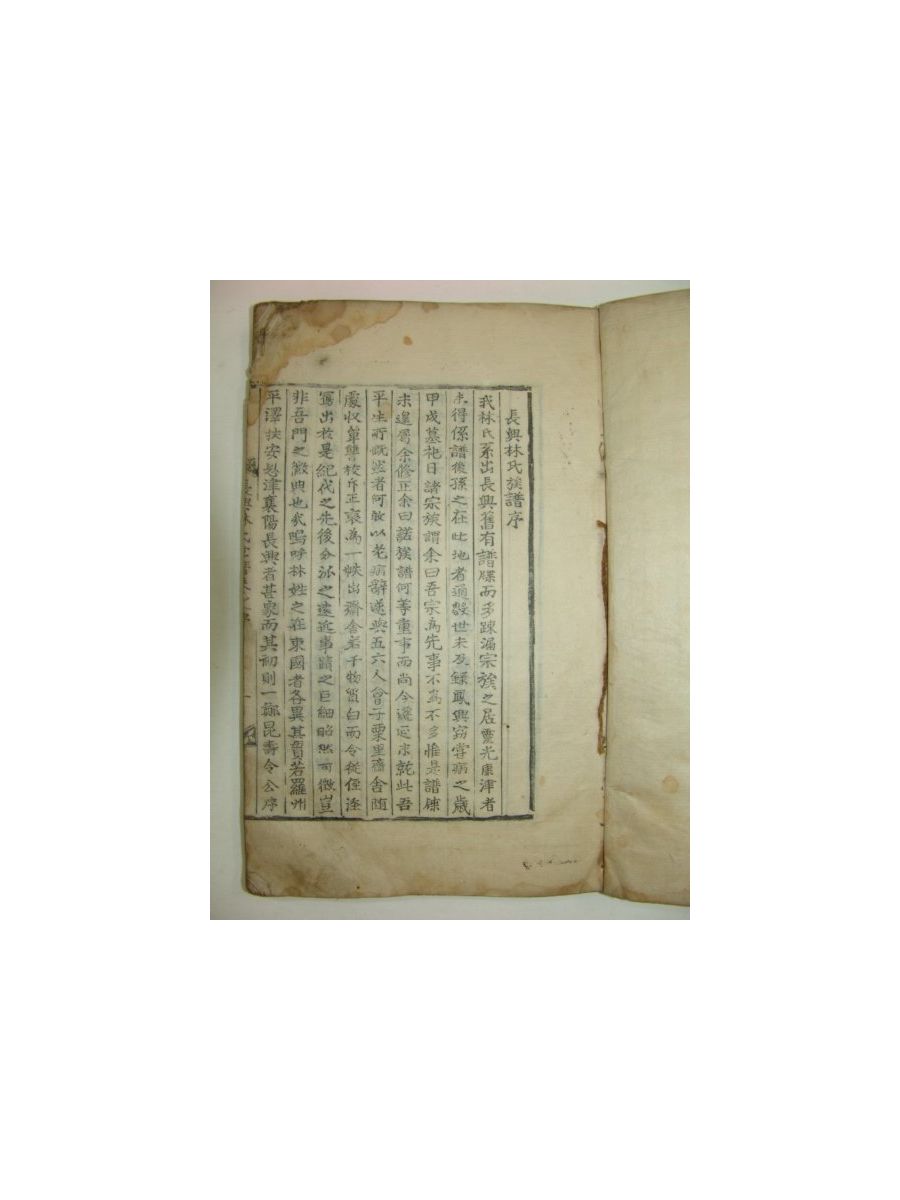 長興林氏族譜序
我林氏系出長興舊有譜牒而多踈漏宗族之居靈光康津者
未得係譜後孫之在此地者過數世未及錄鳳興窃甞病之歲
甲戌墓祀日諸宗族謂余曰吾宗爲先事不爲不多惟是譜牒
未遑屬余修正余曰諾族譜何等重事而尙今遷延未就此吾
平生所慨然者何敢以老病辭遂與五六人會于栗里齋舍随
處收單讐校斥正裒為一帙出齋舍若干物質白而令從侄
寫出於是紀代之先後分派之遠近事蹟之巨細昭然可徵豈
非吾門之徽典也哉嗚呼林姓之在東國者各異其貫若羅州
平澤扶安蔚津襄陽長興者甚衆而其初則一
長興林氏世譜卷之